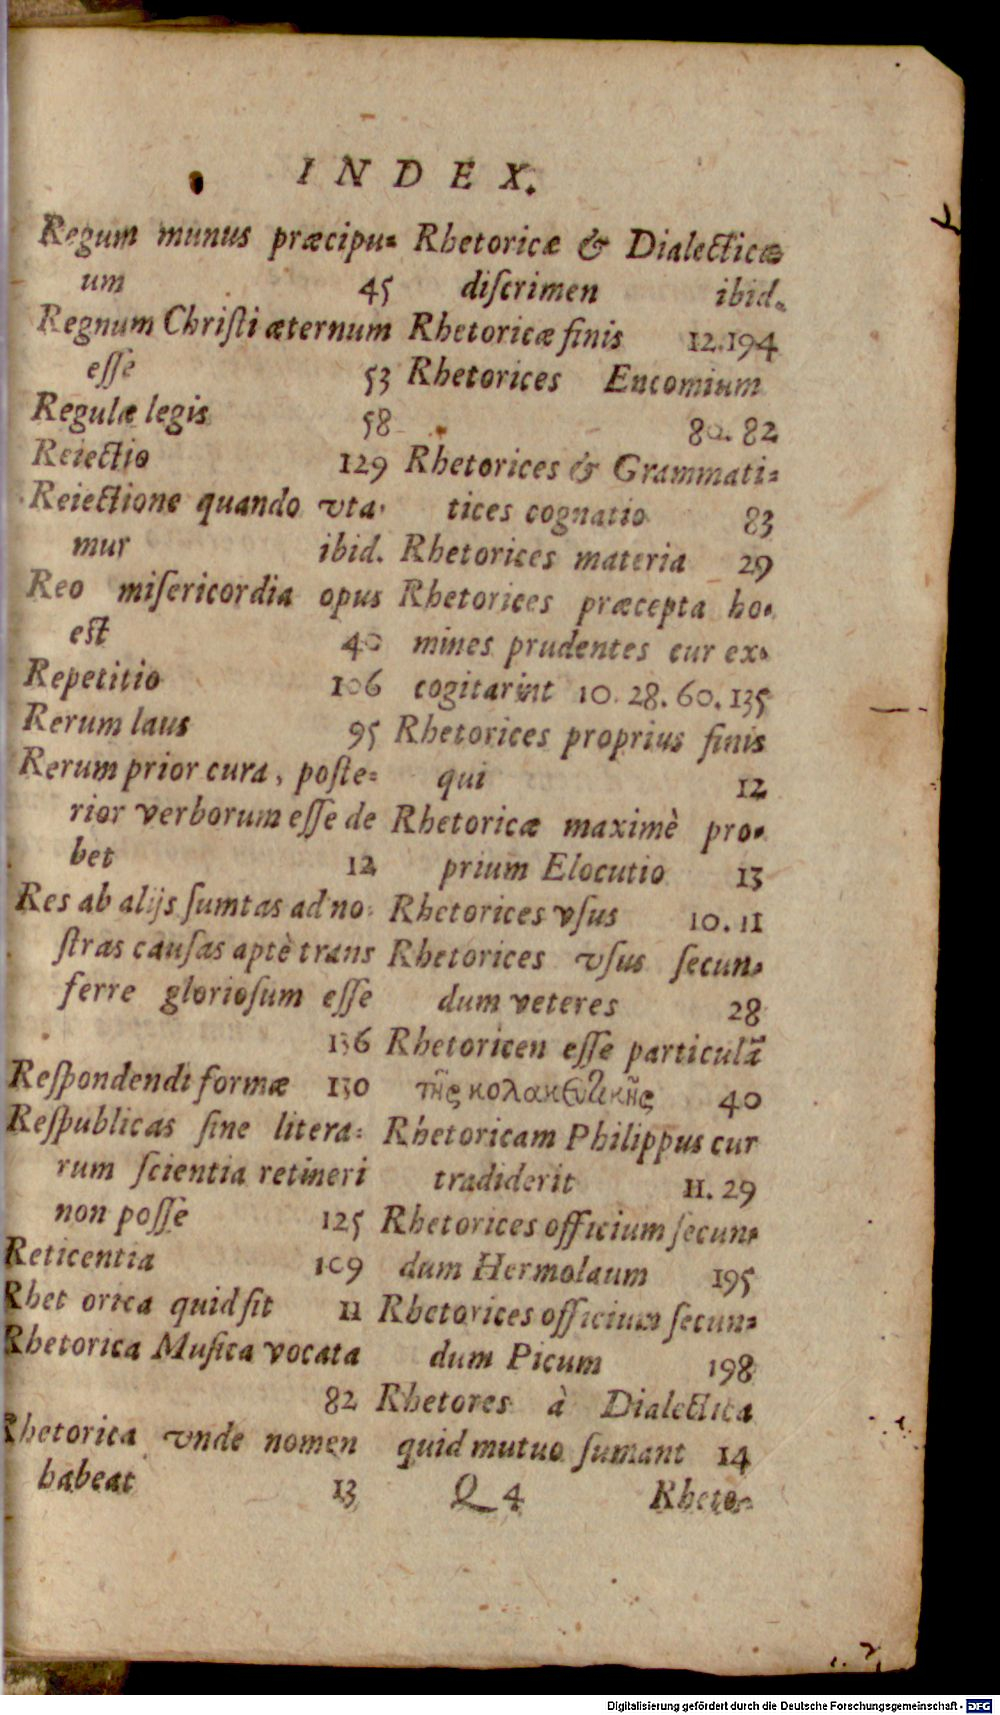 INDEX.
Regum munus præcipu=
um 45
Regnum Chriſti æternum
eſſe 53
Regulæ legis 58
Reiectio 129
Reiectione quando vta-
mur ibid.
Reo miſericordia opus
est 40
Repetitio 106
Rerum laus 95
Rerum prior cura, poſte=
rior verborum eſſe de
bet 12
Res ab alijs ſumtas ad no-
ſtras cauſas aptè trans
ferre glorioſum eſſe
136
Reſpondendi formæ 130
Reſpublicas ſine litera=
rum ſcientia retineri
non poſſe 125
Reticentia 109
Rhet orica quid ſit 11
Rhetorica Muſica vocata
82
Rhetorica vnde nomen
habeat 13
Rhetoricæ & Dialecticæ
diſcrimen ibid.
Rhetoricæ finis 12.194
Rhetorices Encomium
80. 82
Rhetorices & Grammati=
tices cognatio 83
Rhetorices materia 29
Rhetorices præcepta ho-
mines prudentes cur ex-
cogitarint 10. 28. 60. 135
Rhetorices proprius finis
qui 12
Rhetoricæ maximè pro-
prium Elocutio 13
Rhetorices vſus 10. 11
Rhetorices vſus ſecun-
dum veteres 28
Rhetoricen eſſe particulã
τῆς κολακευτικῆς 40
Rhetoricam Philippus cur
tradiderit 11. 29
Rhetorices officium ſecun-
dum Hermolaum 195
Rhetorices officium ſecun=
dum Picum 198
Rhetores à Dialectica
quid mutuo ſumant 14
Q 4 Rheto-
Digitalisierung gefördert durch die Deutsche Forschungsgemeinschaft - DFG